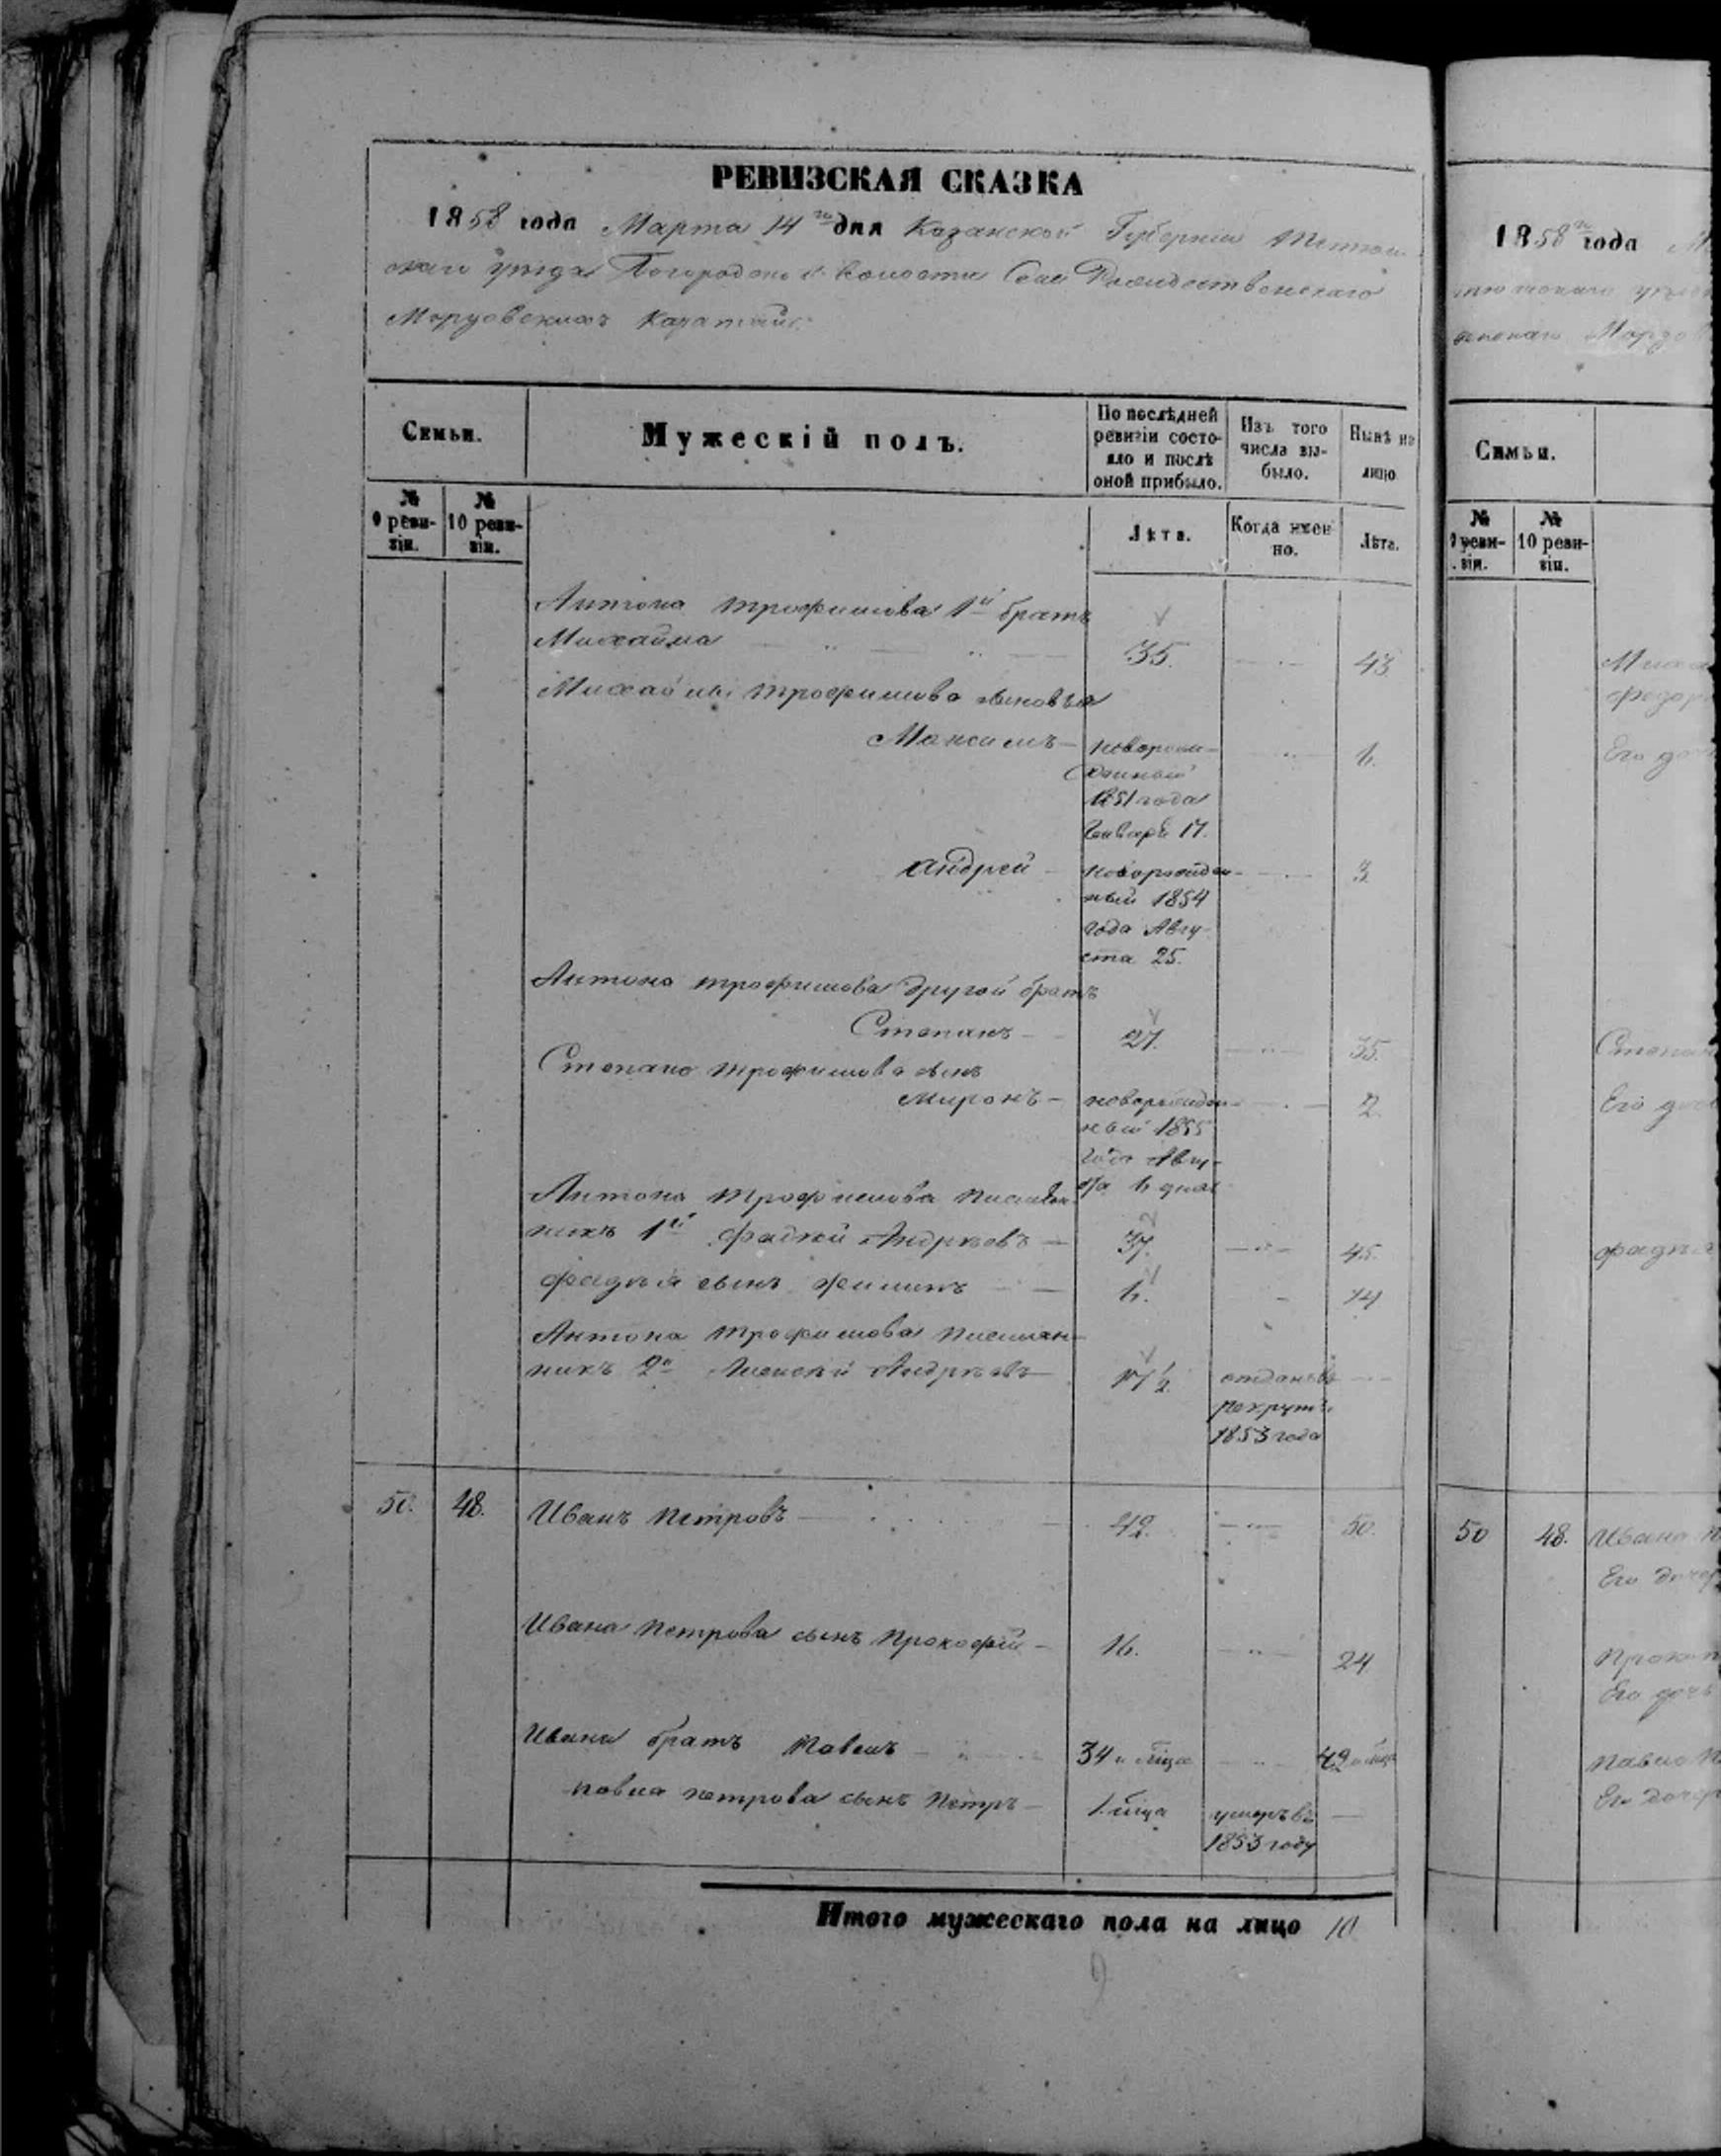 РЕВИЗСКАЯ СКАЗКА
1858 года Марта 14го дня Казанской Губернии Тетюш-
скаго уезда Богородской волости Села Рождественскаго
Мордовскихъ Каратай
Семьи.
Мужескій полъ.
По послѣдней ревизіи состо-
яло и послѣ оной прибыло.
Изъ того числа вы-
было.
Нынѣ на лицо
№ 9 реви-
зіи.
№ 10 реви-
зіи.
Лѣта.
Когда имен
но.
Лѣта.
Антона Трофимова 1й братъ
Михайла 35. 43
Михайлы Трофимова сыновья
Максимъ — новорож-
денный
1851 года
Генваря 17.
Андрей — новорожден-
ный 1854 3
года Авгу-
ста 25.
Антона Трофимова другой братъ
Степанъ — 27. 35.
Степана Трофимова сынъ
Миронъ — новорожден- 2.
ный 1855
года Авгу-
Антона Трофимова племян-
никъ 1й Фадей Андреевъ — 37. 45.
Фадея сынъ 14
Антона Трофимова племян-
никъ 2й Алексей Андреевъ — 17 1/2 отданъ въ
рекруты
1853 года
50. 48. Иванъ Петровъ — 42. 50.
Ивана Петрова сынъ Прокофей — 16. 24
Ивана братъ Павелъ 34 42
Павла Петрова сынъ Петръ — 1 умеръ въ —
1853 году
Итого мужескаго пола на лицо 10
9
1858го года
Семьи.
№ 9 реви-
зіи.
№ 10 реви-
зіи.
Его
Его
50 48. Ивана
Его
Его
Его